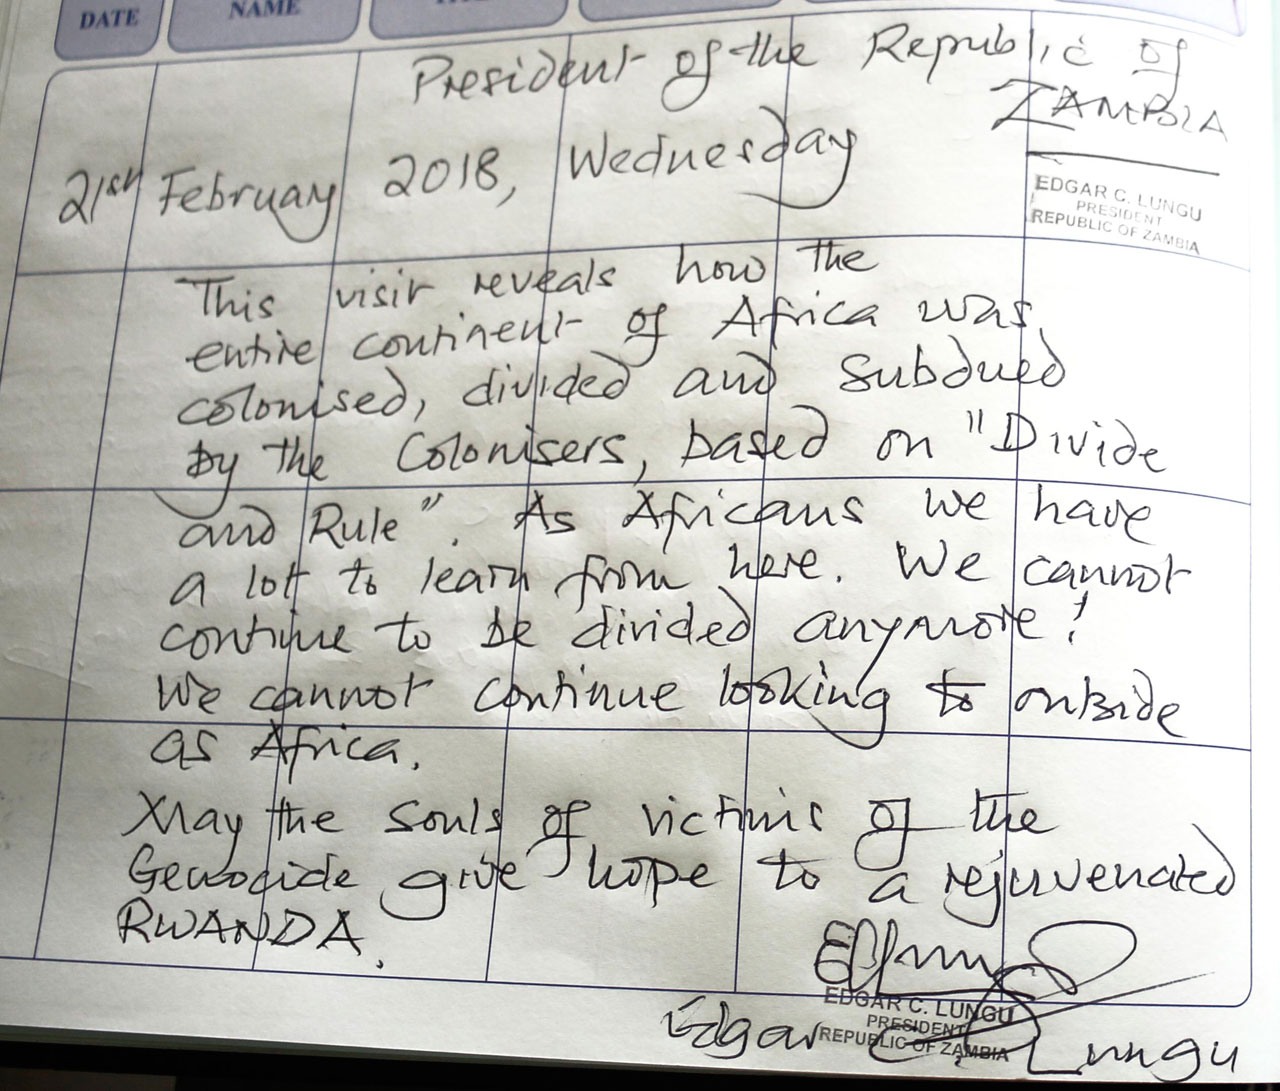 DATE
NAME
President of the Republic of
ZAMBIA
21st February 2018, Wednesday
EDGAR C. LUNGU
PRESIDENT
REPUBLIC OF ZAMBIA
This visit reveals how the
entire continent of Africa was
colonised, divided and subdued
by the Colonisers, based on "Divide
and Rule". As Africans we have
a lot to learn from here. We cannot
continue to be divided anymore!
We cannot continue looking to outside
as Africa.
May the souls of victims of the
Genocide give hope to a rejuvenated
RWANDA.
EDGAR C. LUNGU
PRESIDENT
REPUBLIC OF ZAMBIA
Edgar C. Lungu